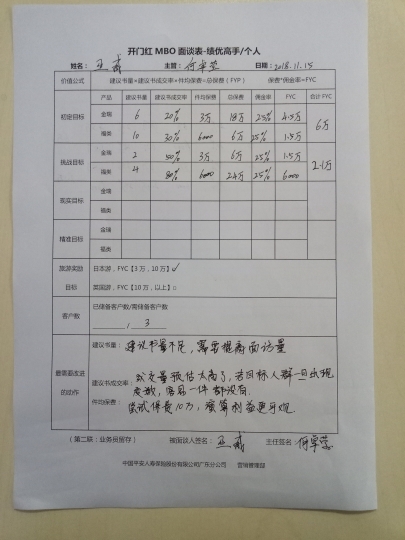 开门红 MBO 面谈表-绩优高手/个人
姓名： 主管：何军莹 日期：2018.11.15
价值公式 建议书量×建议书成交率×件均保费=总保费（FYP） 保费*佣金率=FYC
产品 建议书量 建议书成交率 件均保费 总保费 佣金率 FYC 合计FYC
初定目标 金瑞 6 20% 3万 18万 25% 4.5万 6万
福类 10 30% 6000 6万 25% 1.5万
挑战目标 金瑞 2 50% 3万 6万 25% 1.5万 2.1万
福类 4 80% 6000 2.4万 25% 6000
现实目标 金瑞
福类
精准目标 金瑞
福类
旅游奖励 日本游，FYC【3万，10万】✓
目标 美国游，FYC【10万，以上】□
客户数 已储备客户数/需储备客户数
，3
最需要改进的动作 建议书量：建议书量不足，需要提高面访量
建议书成交率：成交量预估太高了，若目标人群一旦出现
变数，容易一件都没有。
件均保费：尝试件费10万，演算利益更可观
（第二联：业务员留存） 被面谈人签名： 主任签名：何军莹
中国平安人寿保险股份有限公司广东分公司 营销管理部